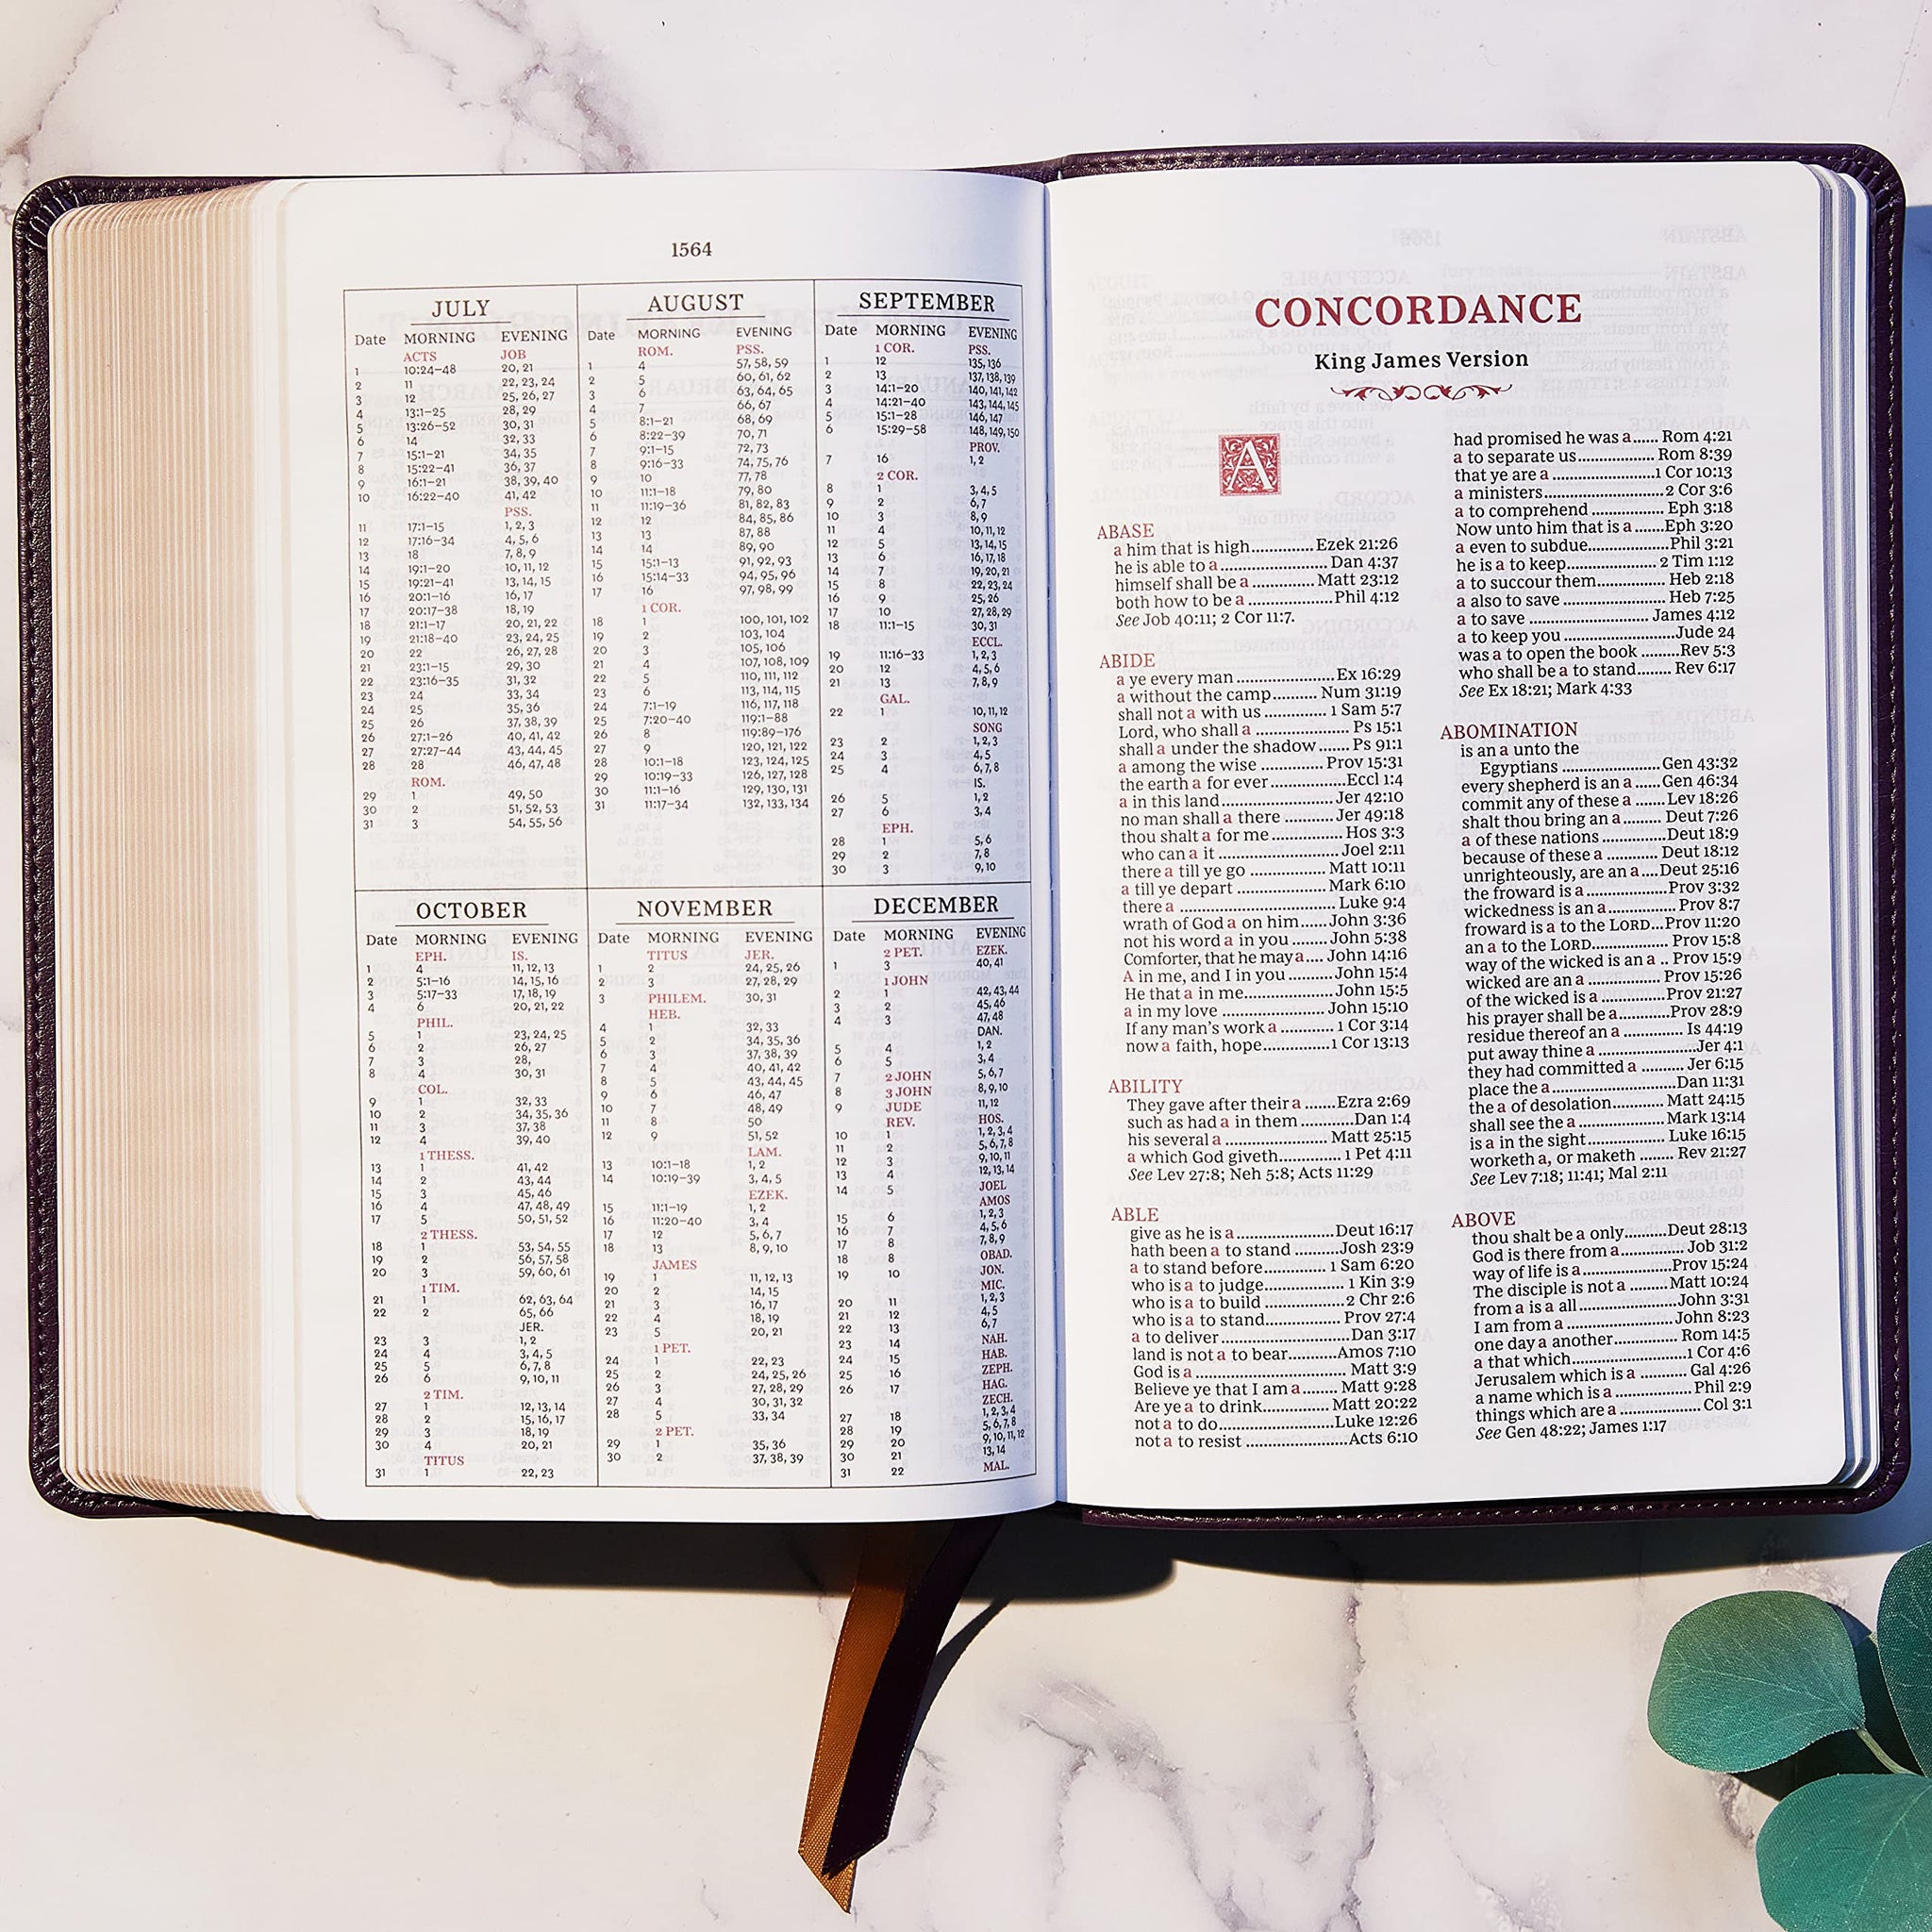 1564
JULY
Date MORNING EVENING
ACTS JOB
1 10:24–48 20, 21
2 11 22, 23, 24
3 12 25, 26, 27
4 13:1–25 28, 29
5 13:26–52 30, 31
6 14 32, 33
7 15:1–21 34, 35
8 15:22–41 36, 37
9 16:1–21 38, 39, 40
10 16:22–40 41, 42
PSS.
11 17:1–15 1, 2, 3
12 17:16–34 4, 5, 6
13 18 7, 8, 9
14 19:1–20 10, 11, 12
15 19:21–41 13, 14, 15
16 20:1–16 16, 17
17 20:17–38 18, 19
18 21:1–17 20, 21, 22
19 21:18–40 23, 24, 25
20 22 26, 27, 28
21 23:1–15 29, 30
22 23:16–35 31, 32
23 24 33, 34
24 25 35, 36
25 26 37, 38, 39
26 27:1–26 40, 41, 42
27 27:27–44 43, 44, 45
28 28 46, 47, 48
ROM.
29 1 49, 50
30 2 51, 52, 53
31 3 54, 55, 56
AUGUST
Date MORNING EVENING
ROM. PSS.
1 4 57, 58, 59
2 5 60, 61, 62
3 6 63, 64, 65
4 7 66, 67
5 8:1–21 68, 69
6 8:22–39 70, 71
7 9:1–15 72, 73
8 9:16–33 74, 75, 76
9 10 77, 78
10 11:1–18 79, 80
11 11:19–36 81, 82, 83
12 12 84, 85, 86
13 13 87, 88
14 14 89, 90
15 15:1–13 91, 92, 93
16 15:14–33 94, 95, 96
17 16 97, 98, 99
1 COR.
18 1 100, 101, 102
19 2 103, 104
20 3 105, 106
21 4 107, 108, 109
22 5 110, 111, 112
23 6 113, 114, 115
24 7:1–19 116, 117, 118
25 7:20–40 119:1–88
26 8 119:89–176
27 9 120, 121, 122
28 10:1–18 123, 124, 125
29 10:19–33 126, 127, 128
30 11:1–16 129, 130, 131
31 11:17–34 132, 133, 134
SEPTEMBER
Date MORNING EVENING
1 COR. PSS.
1 12 135, 136
2 13 137, 138, 139
3 14:1–20 140, 141, 142
4 14:21–40 143, 144, 145
5 15:1–28 146, 147
6 15:29–58 148, 149, 150
PROV.
7 16 1, 2
2 COR.
8 1 3, 4, 5
9 2 6, 7
10 3 8, 9
11 4 10, 11, 12
12 5 13, 14, 15
13 6 16, 17, 18
14 7 19, 20, 21
15 8 22, 23, 24
16 9 25, 26
17 10 27, 28, 29
18 11:1–15 30, 31
ECCL.
19 11:16–33 1, 2, 3
20 12 4, 5, 6
21 13 7, 8, 9
GAL.
22 1 10, 11, 12
SONG
23 2 1, 2, 3
24 3 4, 5
25 4 6, 7, 8
IS.
26 5 1, 2
27 6 3, 4
EPH.
28 1 5, 6
29 2 7, 8
30 3 9, 10
OCTOBER
Date MORNING EVENING
EPH. IS.
1 4 11, 12, 13
2 5:1–16 14, 15, 16
3 5:17–33 17, 18, 19
4 6 20, 21, 22
PHIL.
5 1 23, 24, 25
6 2 26, 27
7 3 28,
8 4 30, 31
COL.
9 1 32, 33
10 2 34, 35, 36
11 3 37, 38
12 4 39, 40
1 THESS.
13 1 41, 42
14 2 43, 44
15 3 45, 46
16 4 47, 48, 49
17 5 50, 51, 52
2 THESS.
18 1 53, 54, 55
19 2 56, 57, 58
20 3 59, 60, 61
1 TIM.
21 1 62, 63, 64
22 2 65, 66
JER.
23 3 1, 2
24 4 3, 4, 5
25 5 6, 7, 8
26 6 9, 10, 11
2 TIM.
27 1 12, 13, 14
28 2 15, 16, 17
29 3 18, 19
30 4 20, 21
TITUS
31 1 22, 23
NOVEMBER
Date MORNING EVENING
TITUS JER.
1 2 24, 25, 26
2 3 27, 28, 29
3 PHILEM. 30, 31
HEB.
4 1 32, 33
5 2 34, 35, 36
6 3 37, 38, 39
7 4 40, 41, 42
8 5 43, 44, 45
9 6 46, 47
10 7 48, 49
11 8 50
12 9 51, 52
LAM.
13 10:1–18 1, 2
14 10:19–39 3, 4, 5
EZEK.
15 11:1–19 1, 2
16 11:20–40 3, 4
17 12 5, 6, 7
18 13 8, 9, 10
JAMES
19 1 11, 12, 13
20 2 14, 15
21 3 16, 17
22 4 18, 19
23 5 20, 21
1 PET.
24 1 22, 23
25 2 24, 25, 26
26 3 27, 28, 29
27 4 30, 31, 32
28 5 33, 34
2 PET.
29 1 35, 36
30 2 37, 38, 39
DECEMBER
Date MORNING EVENING
2 PET. EZEK.
1 3 40, 41
1 JOHN
2 1 42, 43, 44
3 2 45, 46
4 3 47, 48
DAN.
5 4 1, 2
6 5 3, 4
7 2 JOHN 5, 6, 7
8 3 JOHN 8, 9, 10
9 JUDE 11, 12
REV. HOS.
10 1 1, 2, 3, 4
11 2 5, 6, 7, 8
12 3 9, 10, 11
13 4 12, 13, 14
14 5 JOEL
AMOS
15 6 1, 2, 3
16 7 4, 5, 6
17 8 7, 8, 9
18 8 OBAD.
19 10 JON.
MIC.
20 11 1, 2, 3
21 12 4, 5
22 13 6, 7
23 14 NAH.
24 15 HAB.
25 16 ZEPH.
26 17 HAG.
ZECH.
27 18 1, 2, 3, 4
28 19 5, 6, 7, 8
29 20 9, 10, 11, 12
30 21 13, 14
31 22 MAL.
CONCORDANCE
King James Version
A
ABASE
a him that is high............. Ezek 21:26
he is able to a ....................... Dan 4:37
himself shall be a ............. Matt 23:12
both how to be a ................. Phil 4:12
See Job 40:11; 2 Cor 11:7.
ABIDE
a ye every man ..................... Ex 16:29
a without the camp.......... Num 31:19
shall not a with us .............. 1 Sam 5:7
Lord, who shall a ..................... Ps 15:1
shall a under the shadow....... Ps 91:1
a among the wise ............... Prov 15:31
the earth a for ever ................Eccl 1:4
a in this land......................... Jer 42:10
no man shall a there ........... Jer 49:18
thou shalt a for me ................ Hos 3:3
who can a it .......................... Joel 2:11
there a till ye go ................. Matt 10:11
a till ye depart .................... Mark 6:10
there a .................................. Luke 9:4
wrath of God a on him...... John 3:36
not his word a in you ........ John 5:38
Comforter, that he may a.... John 14:16
A in me, and I in you ......... John 15:4
He that a in me................... John 15:5
a in my love ...................... John 15:10
If any man's work a ............ 1 Cor 3:14
now a faith, hope...............1 Cor 13:13
ABILITY
They gave after their a .......Ezra 2:69
such as had a in them ...........Dan 1:4
his several a ...................... Matt 25:15
a which God giveth............. 1 Pet 4:11
See Lev 27:8; Neh 5:8; Acts 11:29
ABLE
give as he is a .....................Deut 16:17
hath been a to stand .......... Josh 23:9
a to stand before................ 1 Sam 6:20
who is a to judge.................. 1 Kin 3:9
who is a to build .................2 Chr 2:6
who is a to stand................ Prov 27:4
a to deliver ........................... Dan 3:17
land is not a to bear...........Amos 7:10
God is a ................................. Matt 3:9
Believe ye that I am a........ Matt 9:28
Are ye a to drink............... Matt 20:22
not a to do.........................Luke 12:26
not a to resist ......................Acts 6:10
had promised he was a...... Rom 4:21
a to separate us................. Rom 8:39
that ye are a .......................1 Cor 10:13
a ministers..........................2 Cor 3:6
a to comprehend ................. Eph 3:18
Now unto him that is a......Eph 3:20
a even to subdue.................Phil 3:21
he is a to keep................... 2 Tim 1:12
a to succour them............... Heb 2:18
a also to save ...................... Heb 7:25
a to save ........................... James 4:12
a to keep you ........................Jude 24
was a to open the book ......... Rev 5:3
who shall be a to stand........ Rev 6:17
See Ex 18:21; Mark 4:33
ABOMINATION
is an a unto the
Egyptians .................... Gen 43:32
every shepherd is an a..... Gen 46:34
commit any of these a ....... Lev 18:26
shalt thou bring an a......... Deut 7:26
a of these nations ..............Deut 18:9
because of these a ........... Deut 18:12
unrighteously, are an a....Deut 25:16
the froward is a ................. Prov 3:32
wickedness is an a............... Prov 8:7
froward is a to the LORD...Prov 11:20
an a to the LORD................ Prov 15:8
way of the wicked is an a .. Prov 15:9
wicked are an a ................ Prov 15:26
of the wicked is a .............. Prov 21:27
his prayer shall be a...........Prov 28:9
residue thereof an a .............. Is 44:19
put away thine a ......................Jer 4:1
they had committed a .......... Jer 6:15
place the a...........................Dan 11:31
the a of desolation............ Matt 24:15
shall see the a ................... Mark 13:14
is a in the sight.................. Luke 16:15
worketh a, or maketh ........ Rev 21:27
See Lev 7:18; 11:41; Mal 2:11
ABOVE
thou shalt be a only.........Deut 28:13
God is there from a............. Job 31:2
way of life is a...................Prov 15:24
The disciple is not a ....... Matt 10:24
from a is a all .................... John 3:31
I am from a ....................... John 8:23
one day a another.............. Rom 14:5
a that which........................1 Cor 4:6
Jerusalem which is a .......... Gal 4:26
a name which is a ................ Phil 2:9
things which are a ................. Col 3:1
See Gen 48:22; James 1:17